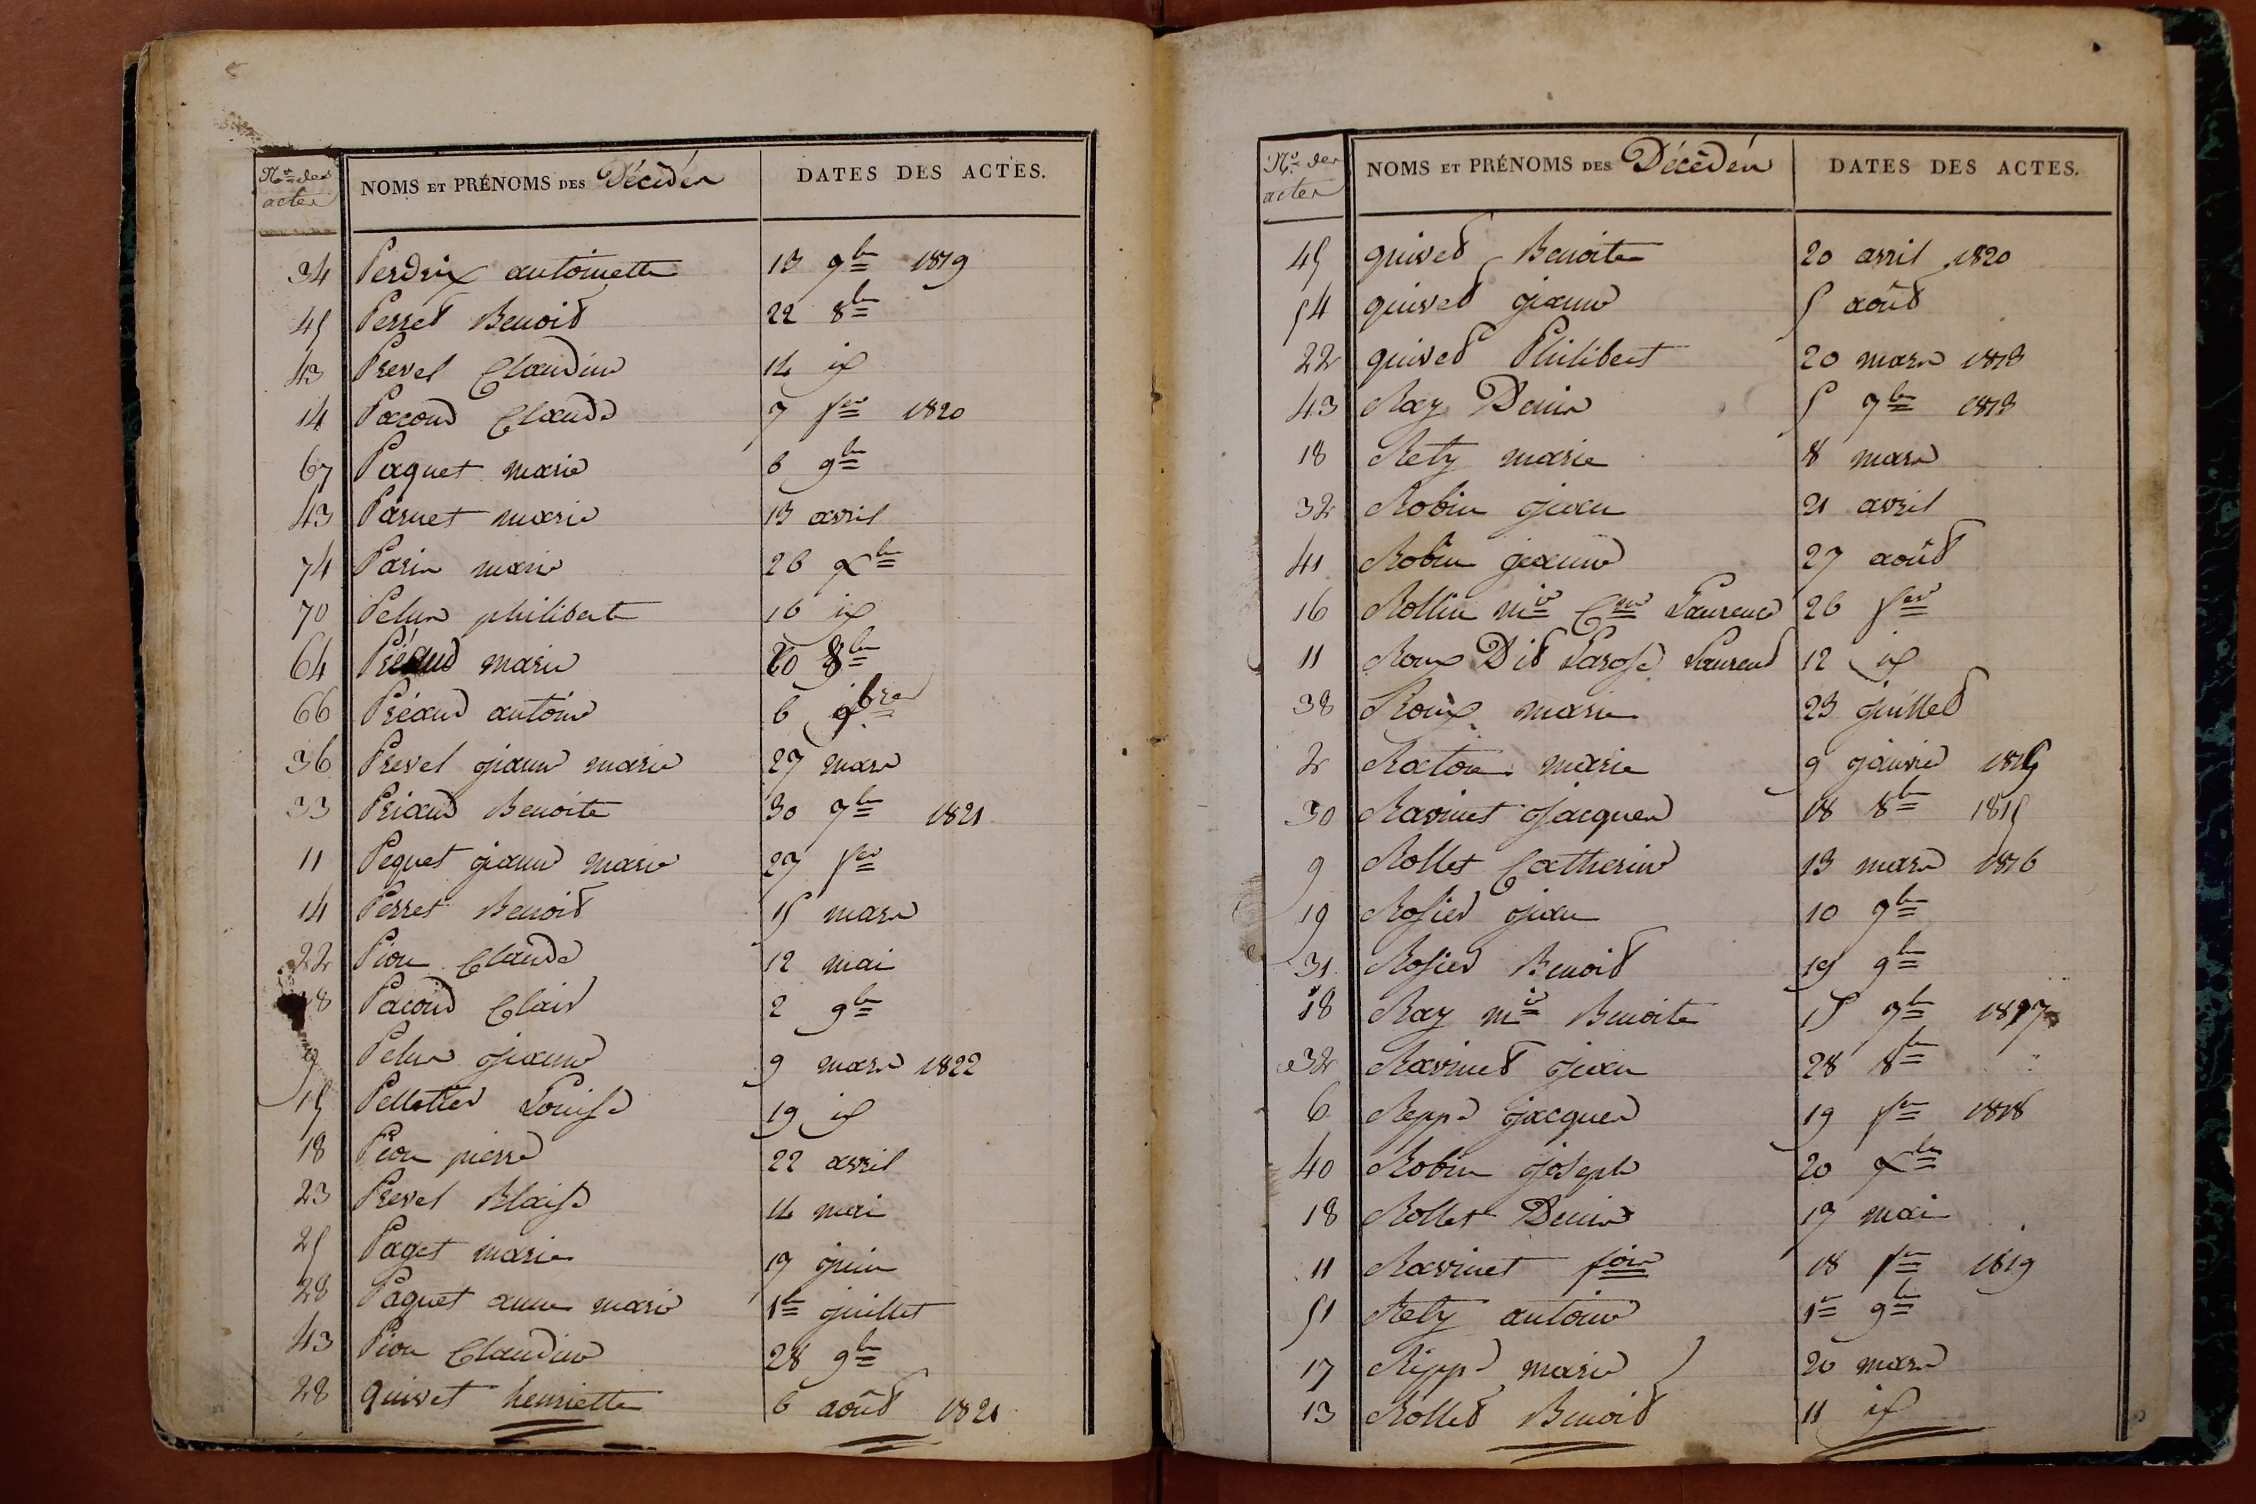 Nos des actes NOMS ET PRÉNOMS DES Décédés DATES DES ACTES.
34 Perdrix antoinette 13 9bre 1819
45 Perret Benoit 22 8bre
43 Prevel Claudine 14 id
14 Pacoud Claude 7 fer 1820
67 Paquet marie 6 9bre
43 Parnet marie 13 avril
74 Paris marie 26 Xbre
70 Pelus philiberte 16 id
64 Préaud marie 20 8bre
66 Préaud antoine 6 9bre
36 Prevel jeanne marie 27 mars
33 Priaud Benoite 30 7bre 1821
11 Pequet jeanne marie 27 fer
14 Perret Benoit 15 mars
22 Pion Claude 12 mai
38 Pacoud Clair 2 9bre
9 Pelus jeanne 9 mars 1822
15 Pelletier Louise 19 id
18 Pion pierre 22 avril
23 Prevel Blaise 14 mai
25 Paget marie 17 juin
28 Paquet anne marie 1er juillet
43 Pion Claudine 28 9bre
28 quivet henriette 6 août 1821
Nos des actes NOMS ET PRÉNOMS DES Décédés DATES DES ACTES.
45 quivet Benoite 20 avril 1820
54 quivet jeanne 5 août
22 quivet Philibert 20 mars 1813
43 Ray Denis 5 7bre 1813
18 Rety marie 8 mars
32 Robin jean 21 avril
41 Robin jeanne 27 août
16 Rollin mie Cne Laurence 26 fer
11 Roux Dit Larose Laurent 12 id
38 Roux marie 23 juillet
2 Raton marie 9 janvier 1815
30 Ravinet jacques 18 8bre 1815
9 Rollet Catherine 13 mars 1816
19 Rosier jean 10 7bre
31 Rosier Benoit 19 9bre
18 Ray mie Benoite 15 7bre 1817
32 Ravinet jean 28 8bre
6 Reppe jacques 19 fer 1818
40 Robin joseph 20 Xbre
18 Rollet Denise 17 mai
11 Ravinet foise 18 fer 1819
51 Rety antoine 1er 9bre
17 Rippe marie 20 mars
13 Rollet Benoit 11 id